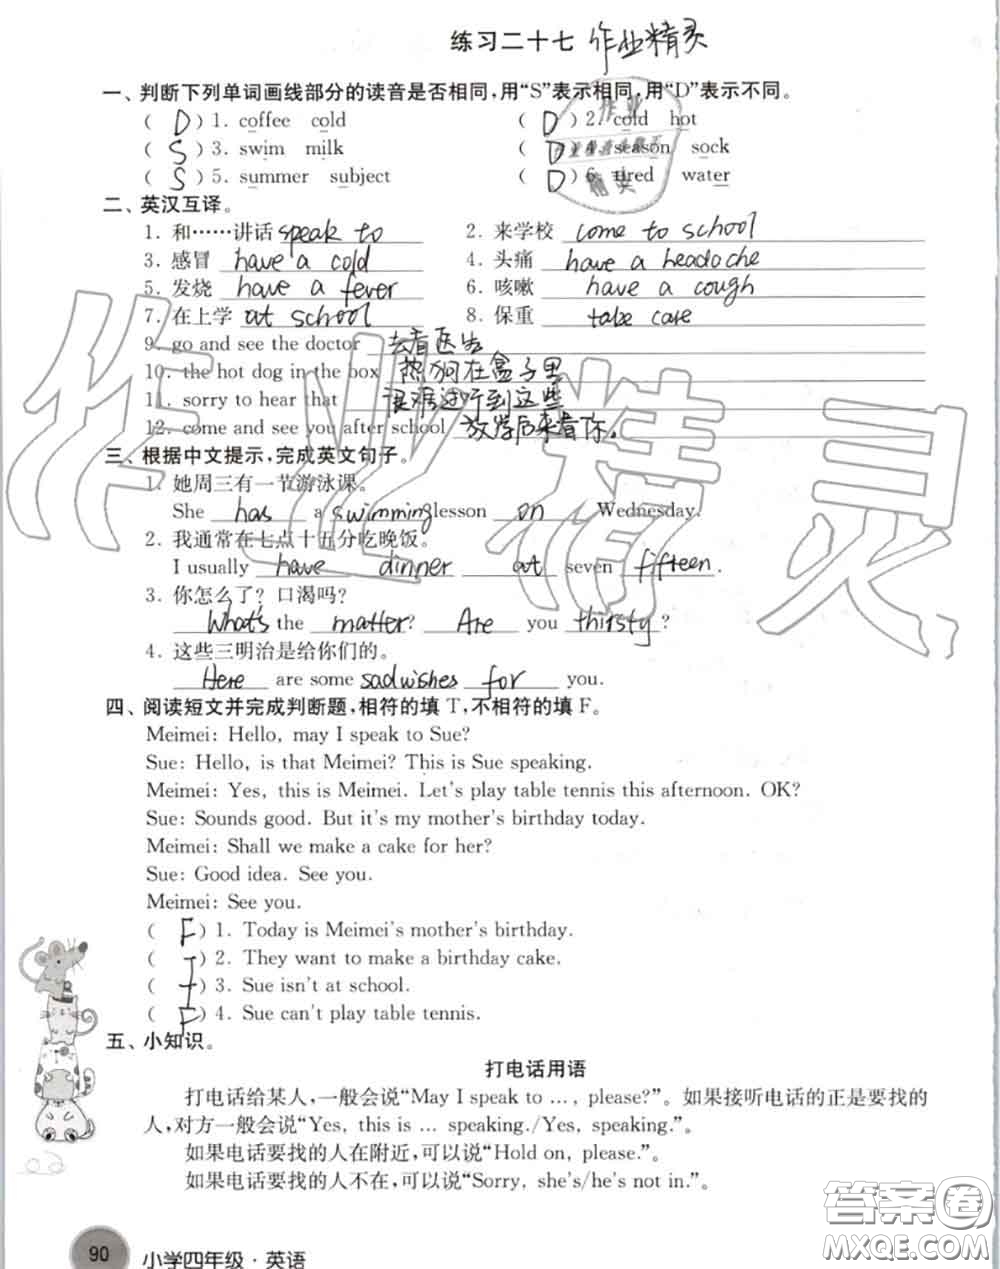 练习二十七 作业精灵
一、判断下列单词画线部分的读音是否相同,用“S”表示相同,用“D”表示不同。
( D ) 1. coffee cold ( D ) 2. cold hot
( S ) 3. swim milk ( D ) 4. season sock
( S ) 5. summer subject ( D ) 6. tired water
二、英汉互译。
1. 和……讲话 speak to 2. 来学校 come to school
3. 感冒 have a cold 4. 头痛 have a headache
5. 发烧 have a fever 6. 咳嗽 have a cough
7. 在上学 at school 8. 保重 take care
9. go and see the doctor 去看医生
10. the hot dog in the box 热狗在盒子里
11. sorry to hear that 很难过听到这些
12. come and see you after school 放学后来看你。
三、根据中文提示,完成英文句子。
1. 她周三有一节游泳课。
She has a swimming lesson on Wednesday.
2. 我通常在七点十五分吃晚饭。
I usually have dinner at seven fifteen.
3. 你怎么了? 口渴吗?
What's the matter? Are you thirsty?
4. 这些三明治是给你们的。
Here are some sadwishes for you.
四、阅读短文并完成判断题,相符的填 T,不相符的填 F。
Meimei: Hello, may I speak to Sue?
Sue: Hello, is that Meimei? This is Sue speaking.
Meimei: Yes, this is Meimei. Let's play table tennis this afternoon. OK?
Sue: Sounds good. But it's my mother's birthday today.
Meimei: Shall we make a cake for her?
Sue: Good idea. See you.
Meimei: See you.
( F ) 1. Today is Meimei's mother's birthday.
( T ) 2. They want to make a birthday cake.
( T ) 3. Sue isn't at school.
( F ) 4. Sue can't play table tennis.
五、小知识。
打电话用语
打电话给某人,一般会说“May I speak to ..., please?”。如果接听电话的正是要找的
人,对方一般会说“Yes, this is ... speaking./Yes, speaking.”。
如果电话要找的人在附近,可以说“Hold on, please.”。
如果电话要找的人不在,可以说“Sorry, she's/he's not in.”。
90 小学四年级·英语
作业精灵
答案圈
MXQE.COM